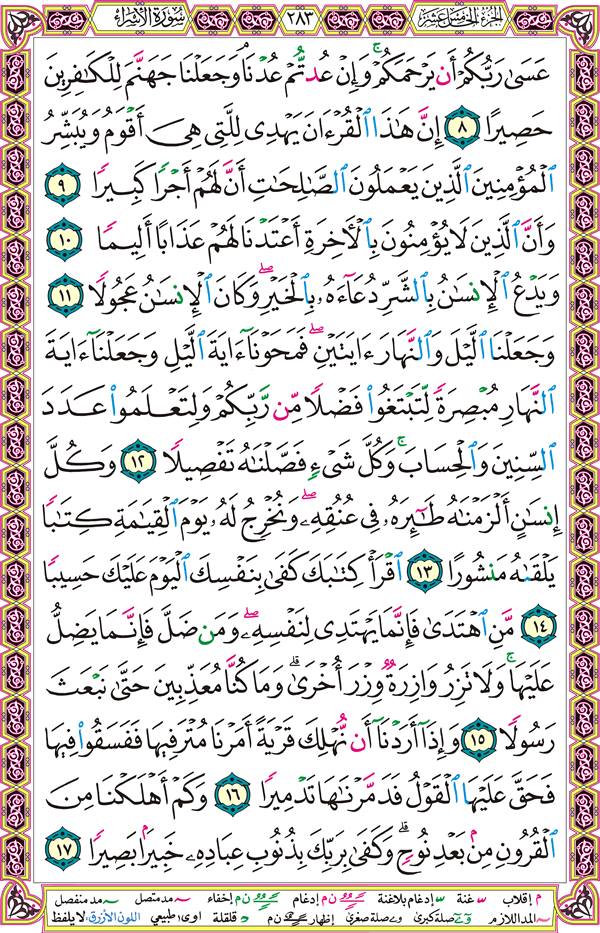 الجزء الخامس عشر ٢٨٣ سورة الإسراء
عَسَىٰ رَبُّكُمْ أَن يَرْحَمَكُمْ ۚ وَإِنْ عُدتُّمْ عُدْنَا ۘ وَجَعَلْنَا جَهَنَّمَ لِلْكَٰفِرِينَ
حَصِيرًا ٨ إِنَّ هَٰذَا ٱلْقُرْءَانَ يَهْدِى لِلَّتِى هِىَ أَقْوَمُ وَيُبَشِّرُ
ٱلْمُؤْمِنِينَ ٱلَّذِينَ يَعْمَلُونَ ٱلصَّٰلِحَٰتِ أَنَّ لَهُمْ أَجْرًا كَبِيرًا ٩
وَأَنَّ ٱلَّذِينَ لَا يُؤْمِنُونَ بِٱلْءَاخِرَةِ أَعْتَدْنَا لَهُمْ عَذَابًا أَلِيمًا ١٠
وَيَدْعُ ٱلْإِنسَٰنُ بِٱلشَّرِّ دُعَآءَهُۥ بِٱلْخَيْرِ ۖ وَكَانَ ٱلْإِنسَٰنُ عَجُولًا ١١
وَجَعَلْنَا ٱلَّيْلَ وَٱلنَّهَارَ ءَايَتَيْنِ ۖ فَمَحَوْنَآ ءَايَةَ ٱلَّيْلِ وَجَعَلْنَآ ءَايَةَ
ٱلنَّهَارِ مُبْصِرَةً لِّتَبْتَغُوا۟ فَضْلًا مِّن رَّبِّكُمْ وَلِتَعْلَمُوا۟ عَدَدَ
ٱلسِّنِينَ وَٱلْحِسَابَ ۚ وَكُلَّ شَىْءٍ فَصَّلْنَٰهُ تَفْصِيلًا ١٢ وَكُلَّ
إِنسَٰنٍ أَلْزَمْنَٰهُ طَٰٓئِرَهُۥ فِى عُنُقِهِۦ ۖ وَنُخْرِجُ لَهُۥ يَوْمَ ٱلْقِيَٰمَةِ كِتَٰبًا
يَلْقَىٰهُ مَنشُورًا ١٣ ٱقْرَأْ كِتَٰبَكَ كَفَىٰ بِنَفْسِكَ ٱلْيَوْمَ عَلَيْكَ حَسِيبًا
١٤ مَّنِ ٱهْتَدَىٰ فَإِنَّمَا يَهْتَدِى لِنَفْسِهِۦ ۖ وَمَن ضَلَّ فَإِنَّمَا يَضِلُّ
عَلَيْهَا ۚ وَلَا تَزِرُ وَازِرَةٌ وِزْرَ أُخْرَىٰ ۗ وَمَا كُنَّا مُعَذِّبِينَ حَتَّىٰ نَبْعَثَ
رَسُولًا ١٥ وَإِذَآ أَرَدْنَآ أَن نُّهْلِكَ قَرْيَةً أَمَرْنَا مُتْرَفِيهَا فَفَسَقُوا۟ فِيهَا
فَحَقَّ عَلَيْهَا ٱلْقَوْلُ فَدَمَّرْنَٰهَا تَدْمِيرًا ١٦ وَكَمْ أَهْلَكْنَا مِنَ
ٱلْقُرُونِ مِنۢ بَعْدِ نُوحٍ ۗ وَكَفَىٰ بِرَبِّكَ بِذُنُوبِ عِبَادِهِۦ خَبِيرًۢا بَصِيرًا ١٧
م إقلاب غنة إدغام بلاغنة ن م إدغام ن م إخفاء مد متصل مد منفصل
المد اللازم صلة كبرى صلة صغرى إظهار ن م قلقلة اوى: طبيعي اللون الأزرق: لا يلفظ